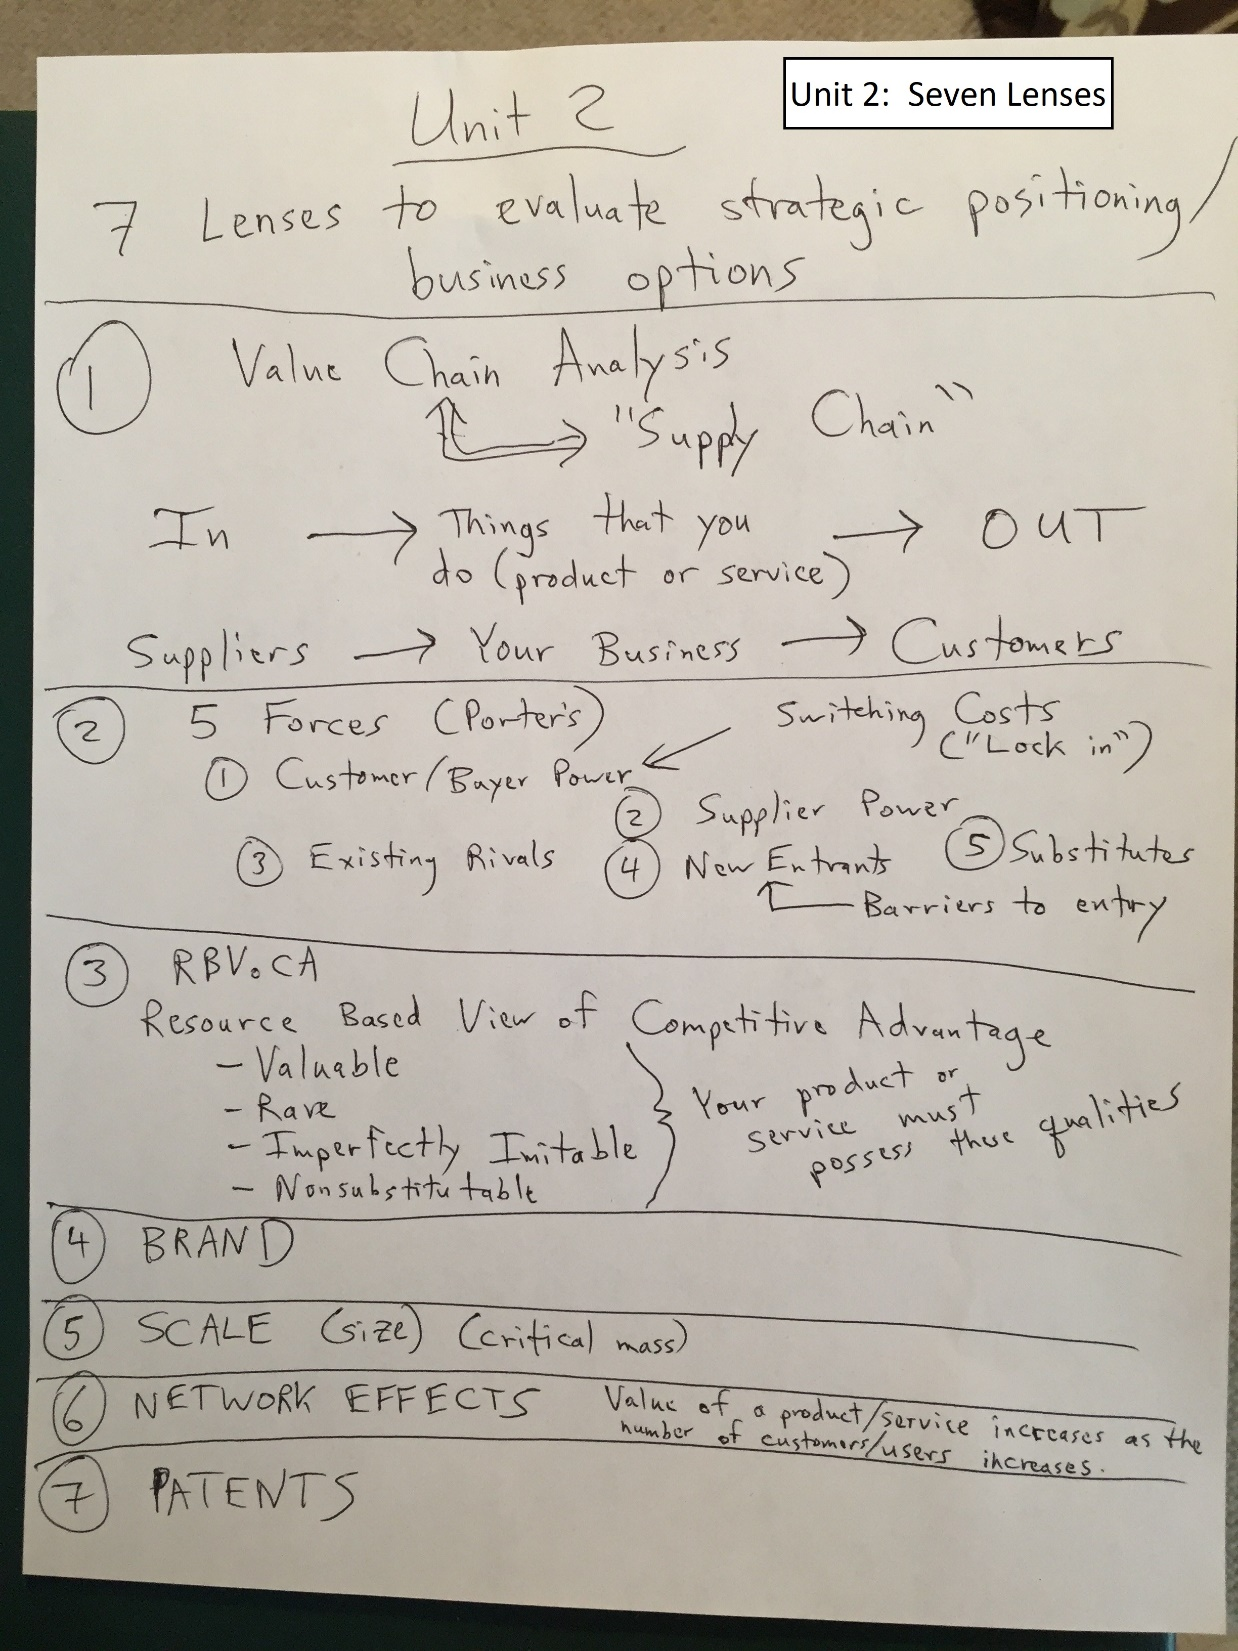 Unit 2: Seven Lenses
Unit 2
7 Lenses to evaluate strategic positioning/
business options
1 Value Chain Analysis
"Supply Chain"
In → Things that you → OUT
do (product or service)
Suppliers → Your Business → Customers
2 5 Forces (Porter's)
Switching Costs
("Lock in")
1 Customer/Buyer Power
2 Supplier Power
3 Existing Rivals
4 New Entrants
5 Substitutes
Barriers to entry
3 RBV.CA
Resource Based View of Competitive Advantage
- Valuable
- Rare
- Imperfectly Imitable
- Nonsubstitutable
Your product or
service must
possess these qualities
4 BRAND
5 SCALE (size) (critical mass)
6 NETWORK EFFECTS Value of a product/service increases as the
number of customers/users increases.
7 PATENTS